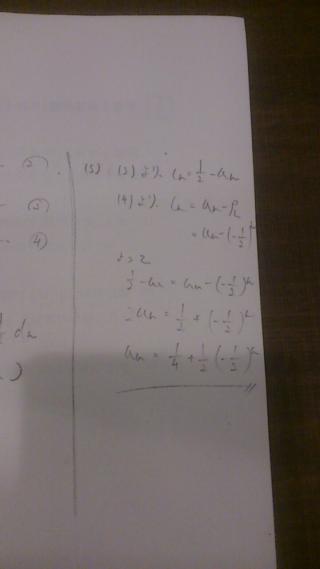 ②
③
④
(5) (3)より. Cₙ = 1/2 - aₙ
(4)より. Cₙ = aₙ - Pₙ
= aₙ - (-1/2)ⁿ
よって
1/2 - aₙ = aₙ - (-1/2)ⁿ
2aₙ = 1/2 + (-1/2)ⁿ
aₙ = 1/4 + 1/2 (-1/2)ⁿ